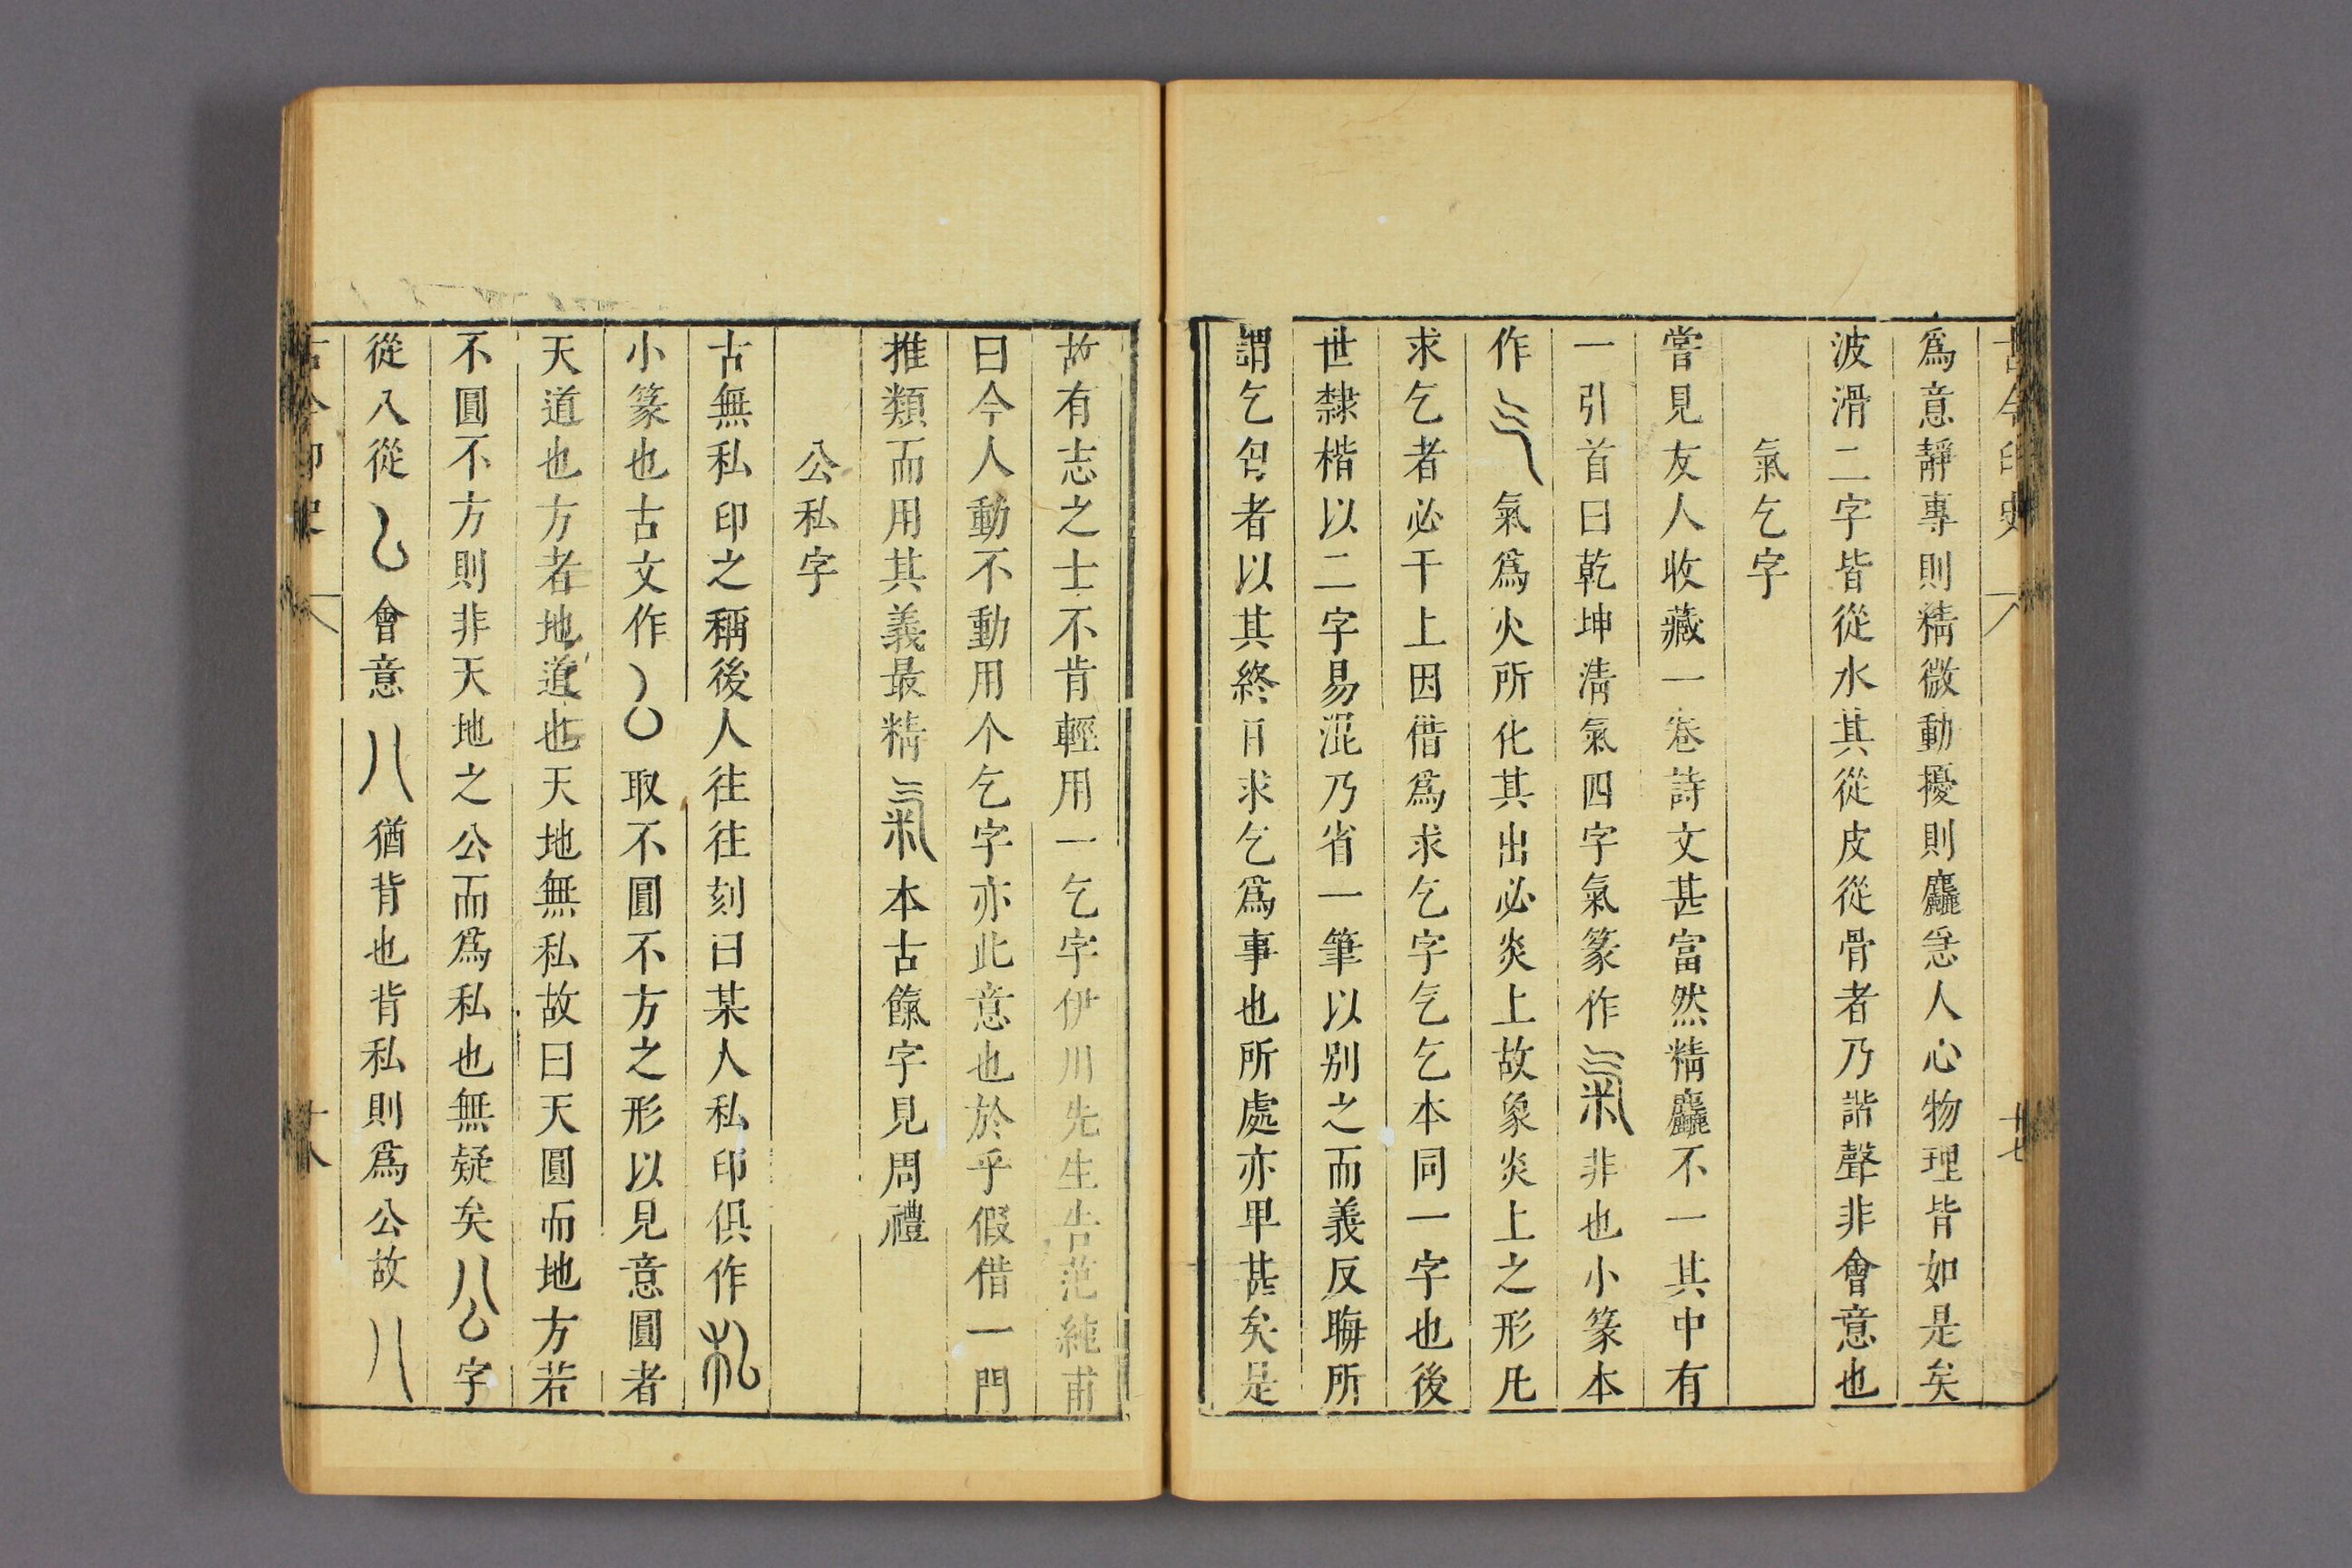 古今印史
十七
爲意靜專則精微動擾則麤㤅人心物理皆如是矣
波滑二字皆從水其從皮從骨者乃諧聲非會意也
氣乞字
嘗見友人收藏一卷詩文甚富然精麤不一其中有
一引首曰乾坤清氣四字氣篆作氣非也小篆本
作气氣爲火所化其出必炎上故象炎上之形凡
求乞者必干上因借爲求乞字气乞本同一字也後
世隸楷以二字易混乃省一筆以别之而義反晦所
謂乞匄者以其終日求乞爲事也所處亦卑甚矣是
故有志之士不肯輕用一乞字伊川先生告范純甫
曰今人動不動用个乞字亦此意也於乎假借一門
推類而用其義最精氣本古餼字見周禮
公私字
古無私印之稱後人往往刻曰某人私印俱作私
小篆也古文作取不圓不方之形以見意圓者
天道也方者地道也天地無私故曰天圓而地方若
不圓不方則非天地之公而爲私也無疑矣公字
從八從會意八猶背也背私則爲公故八
古今印史
十八